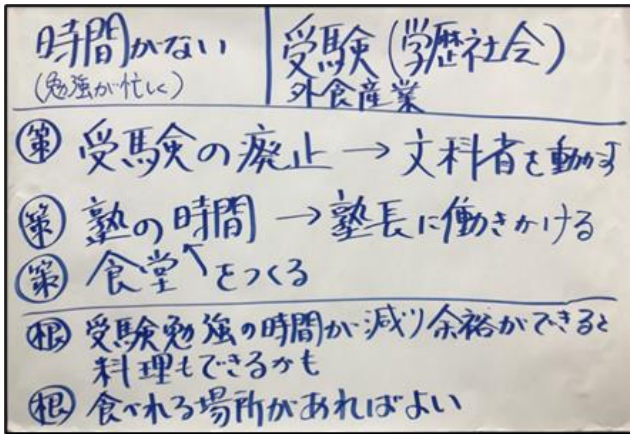 時間がない
(勉強が忙しく)
受験(学歴社会)
外食産業
策 受験の廃止→文科者を動かす
策 塾の時間→塾長に働きかける
策 食堂↑をつくる
根 受験勉強の時間が減り余裕ができると
料理もできるかも
根 食べれる場所があればよい